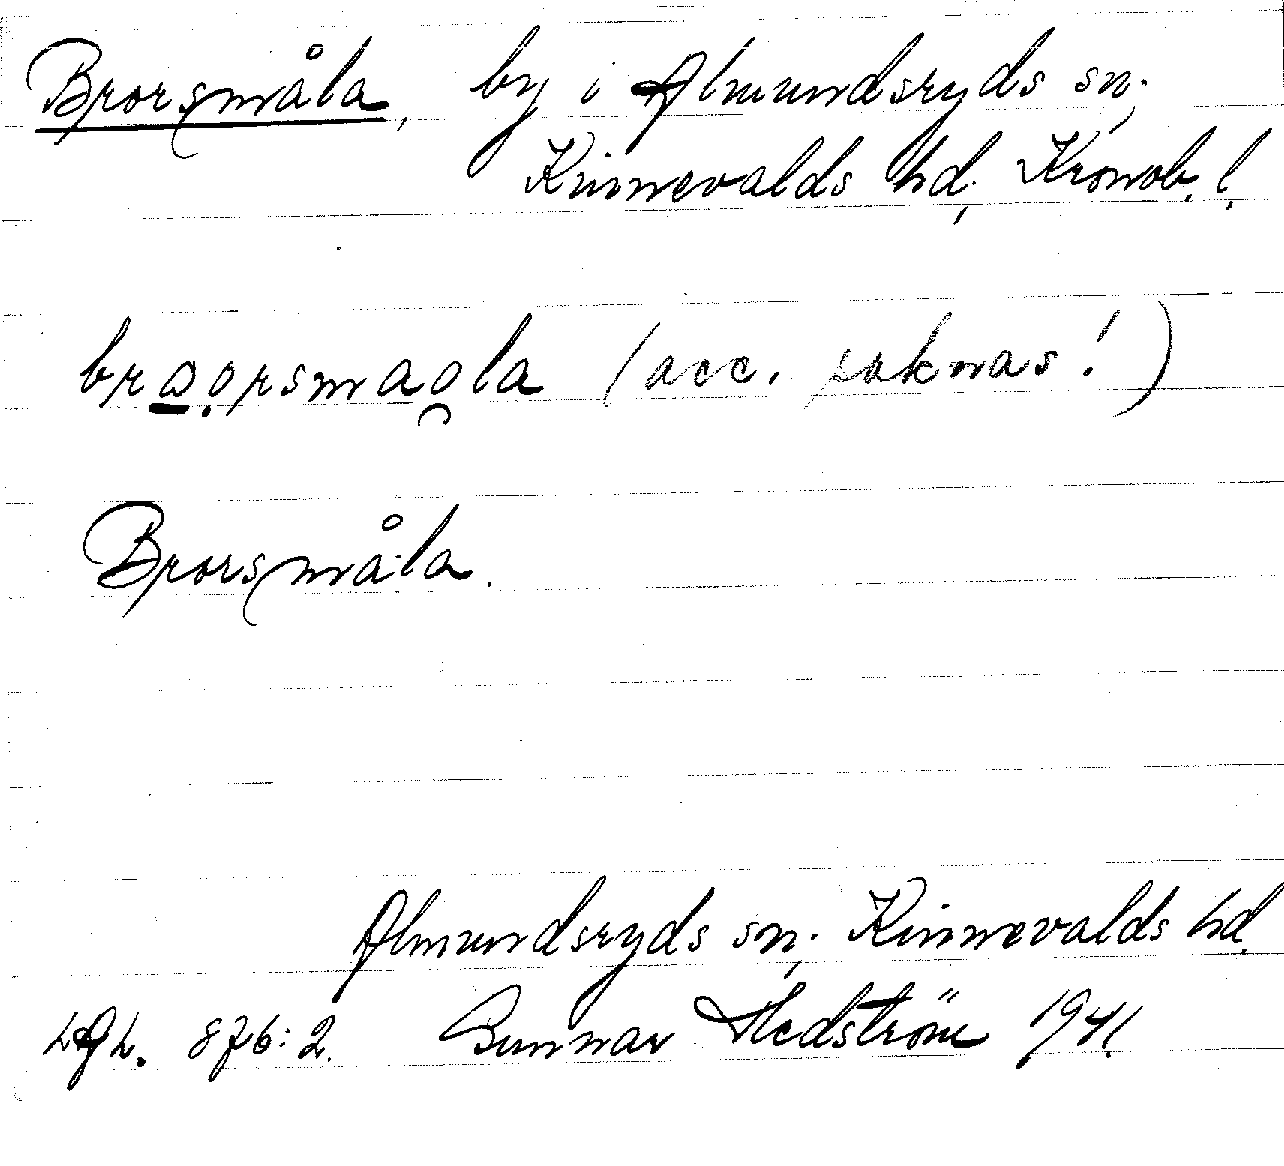 Brorsmåla, by i Almundsryds sn,
Kinnevalds hd, Kronob. l.
(acc. saknas!)
Brorsmåla.
Almundsryds sn, Kinnevalds hd
876:2. Gunnar Hedström 1941.